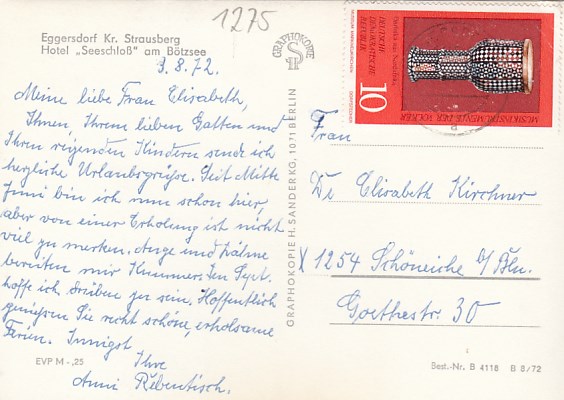 1275
Eggersdorf Kr. Strausberg
Hotel „Seeschloß" am Bötzsee
9.8.72.
Meine liebe Frau Elisabeth,
Ihnen, Ihrem lieben Gatten und
Ihren reizenden Kindern sende ich
herzliche Urlaubsgrüße. Seit Mitte
Juni bin ich nun schon hier,
aber von einer Erholung ist nicht
viel zu merken. Auge und Zähne
bereiten mir Kummer. Im Sept.
hoffe ich drüben zu sein. Hoffentlich
genießen Sie recht schöne, erholsame
Ferien. Innigst
Ihre
Anni Rebentisch.
EVP M -,25
GRAPHOKOPIE
GRAPHOKOPIE H. SANDER KG, 1071 BERLIN
MUSIKINSTRUMENTE DER VÖLKER
DEUTSCHE
DEMOKRATISCHE
REPUBLIK
10
Frau
Dr. Elisabeth Kirchner
X 1254 Schöneiche b/Bln.
Goethestr. 30
Best.-Nr. B 4118 B 8/72